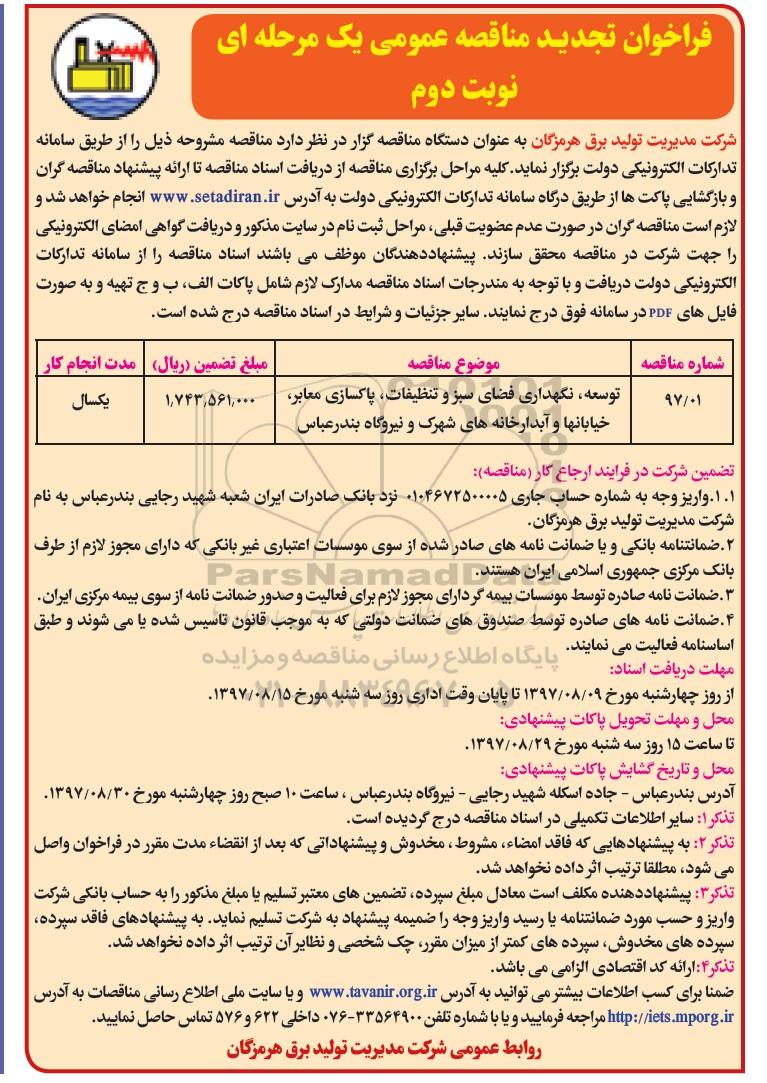 فراخوان تجدیـد مناقصه عمومی یک مرحله ای
نوبت دوم
شرکت مدیریت تولید برق هرمزگان به عنوان دستگاه مناقصه گزار در نظر دارد مناقصه مشروحه ذیل را از طریق سامانه
تدارکات الکترونیکی دولت برگزار نماید.کلیه مراحل برگزاری مناقصه از دریافت اسناد مناقصه تا ارائه پیشنهاد مناقصه گران
و بازگشایی پاکت ها از طریق درگاه سامانه تدارکات الکترونیکی دولت به آدرس www.setadiran.ir انجام خواهد شد و
لازم است مناقصه گران در صورت عدم عضویت قبلی، مراحل ثبت نام در سایت مذکور و دریافت گواهی امضای الکترونیکی
را جهت شرکت در مناقصه محقق سازند. پیشنهاددهندگان موظف می باشند اسناد مناقصه را از سامانه تدارکات
الکترونیکی دولت دریافت و با توجه به مندرجات اسناد مناقصه مدارک لازم شامل پاکات الف، ب و ج تهیه و به صورت
فایل های PDF در سامانه فوق درج نمایند. سایر جزئیات و شرایط در اسناد مناقصه درج شده است.
شماره مناقصه موضوع مناقصه مبلغ تضمین (ریال) مدت انجام کار
۹۷/۰۱ توسعه، نگهداری فضای سبز و تنظیفات، پاکسازی معابر، ۱,۷۴۳,۵۶۱,۰۰۰ یکسال
خیابانها و آبدارخانه های شهرک و نیروگاه بندرعباس
تضمین شرکت در فرایند ارجاع کار (مناقصه):
۱.۱.واریز وجه به شماره حساب جاری ۰۱۰۴۶۷۲۵۰۰۰۰۵ نزد بانک صادرات ایران شعبه شهید رجایی بندرعباس به نام
شرکت مدیریت تولید برق هرمزگان.
۲.ضمانتنامه بانکی و یا ضمانت نامه های صادر شده از سوی موسسات اعتباری غیر بانکی که دارای مجوز لازم از طرف
بانک مرکزی جمهوری اسلامی ایران هستند.
ParsNamadData
۳.ضمانت نامه صادره توسط موسسات بیمه گر دارای مجوز لازم برای فعالیت و صدور ضمانت نامه از سوی بیمه مرکزی ایران.
۴.ضمانت نامه های صادره توسط صندوق های ضمانت دولتی که به موجب قانون تاسیس شده یا می شوند و طبق
اساسنامه فعالیت می نمایند.
پایگاه اطلاع رسانی مناقصه و مزایده
مهلت دریافت اسناد:
از روز چهارشنبه مورخ ۱۳۹۷/۰۸/۰۹ تا پایان وقت اداری روز سه شنبه مورخ ۱۳۹۷/۰۸/۱۵.
محل و مهلت تحویل پاکات پیشنهادی:
تا ساعت ۱۵ روز سه شنبه مورخ ۱۳۹۷/۰۸/۲۹.
محل و تاریخ گشایش پاکات پیشنهادی:
آدرس بندرعباس - جاده اسکله شهید رجایی - نیروگاه بندرعباس ، ساعت ۱۰ صبح روز چهارشنبه مورخ ۱۳۹۷/۰۸/۳۰.
تذکر۱: سایر اطلاعات تکمیلی در اسناد مناقصه درج گردیده است.
تذکر۲: به پیشنهادهایی که فاقد امضاء، مشروط ، مخدوش و پیشنهاداتی که بعد از انقضاء مدت مقرر در فراخوان واصل
می شود، مطلقا ترتیب اثر داده نخواهد شد.
تذکر۳: پیشنهاددهنده مکلف است معادل مبلغ سپرده، تضمین های معتبر تسلیم یا مبلغ مذکور را به حساب بانکی شرکت
واریز و حسب مورد ضمانتنامه یا رسید واریز وجه را ضمیمه پیشنهاد به شرکت تسلیم نماید. به پیشنهادهای فاقد سپرده،
سپرده های مخدوش، سپرده های کمتر از میزان مقرر، چک شخصی و نظایر آن ترتیب اثر داده نخواهد شد.
تذکر۴:ارائه کد اقتصادی الزامی می باشد.
ضمنا برای کسب اطلاعات بیشتر می توانید به آدرس www.tavanir.org.ir و یا سایت ملی اطلاع رسانی مناقصات به آدرس
http://iets.mporg.ir مراجعه فرمایید و یا با شماره تلفن ۳۳۵۶۴۹۰۰-۰۷۶ داخلی ۶۲۲ و ۵۷۶ تماس حاصل نمایید.
روابط عمومی شرکت مدیریت تولید برق هرمزگان